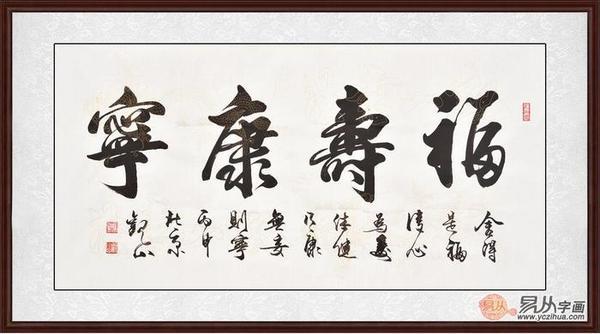 福壽康寧
舍得
是福
清心
為壽
体健
乃康
無妄
則寧
丙申
北京
觀山
易从字画
www.yczihua.com